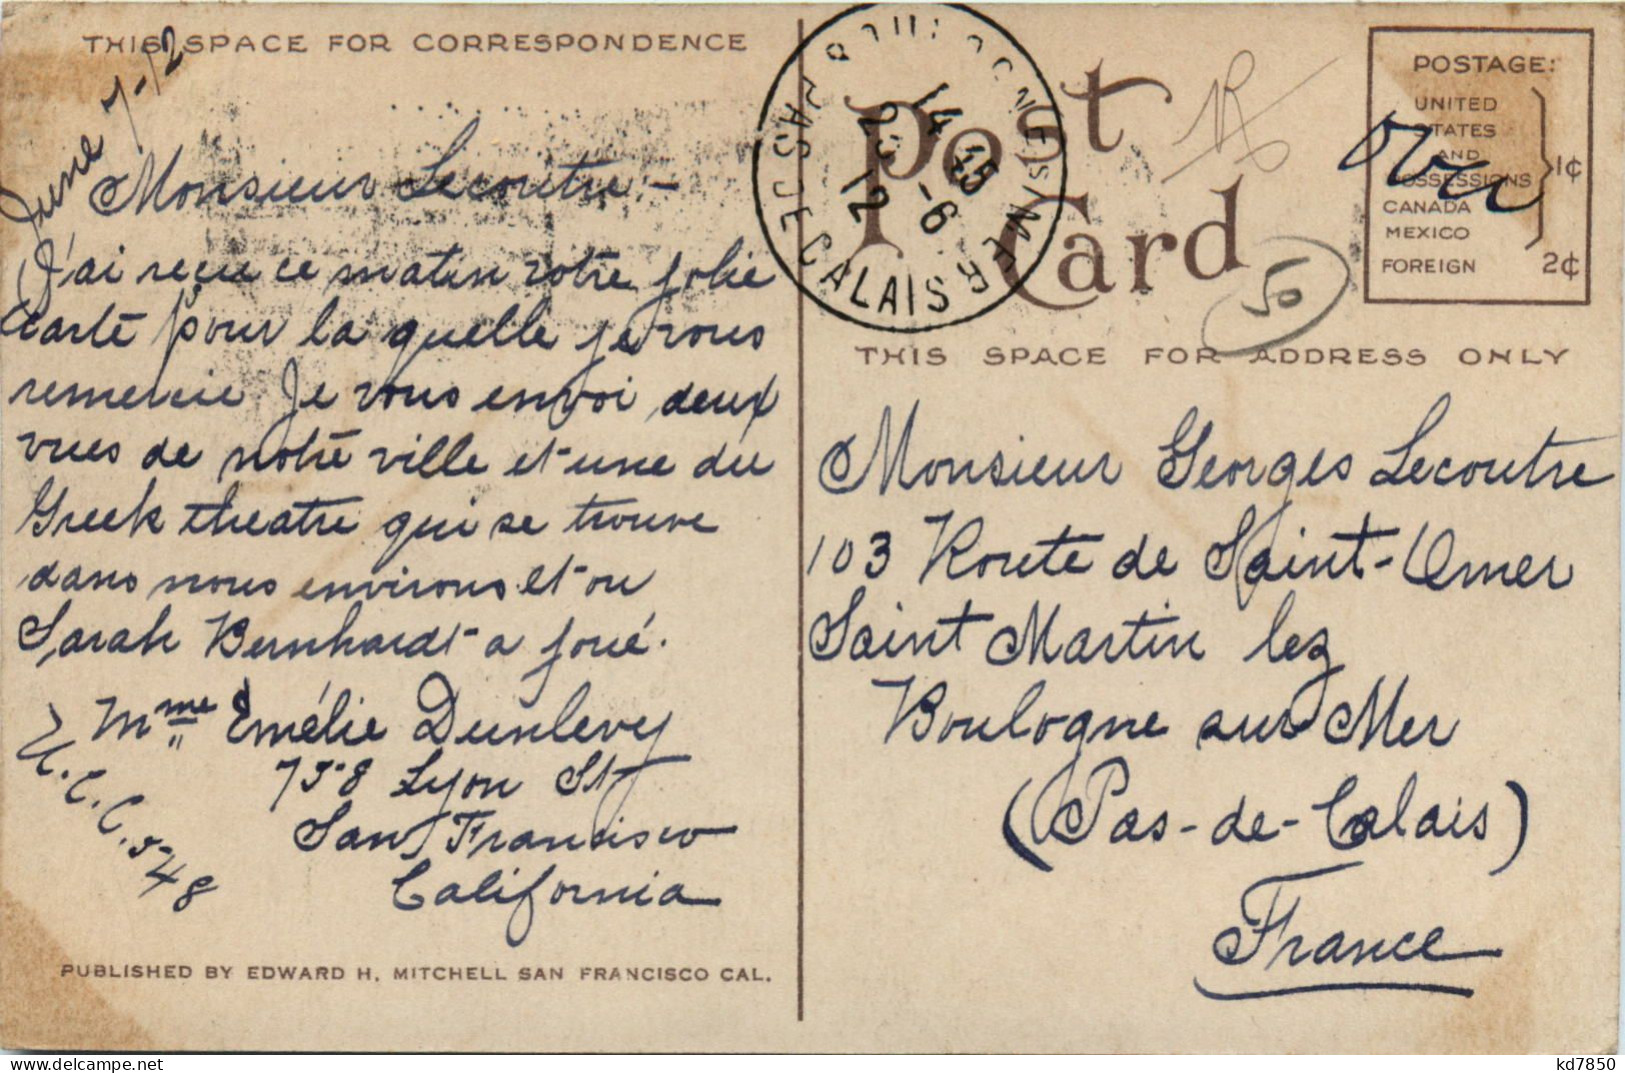 THIS SPACE FOR CORRESPONDENCE
June 7-12
Monsieur Lecoutre -
J'ai reçu ce matin votre jolie
carte pour la quelle je vous
remercie Je vous envoi deux
vues de notre ville et une du
Greek theatre qui se trouve
dans nous environs et ou
Sarah Bernhardt a joué.
Mme Emélie Dunlevy
758 Lyon St
San Francisco
California
C. C. 548
PUBLISHED BY EDWARD H. MITCHELL SAN FRANCISCO CAL.
Post
Card
BOULOGNE S MER
14 45
23 - 6
12
PAS DE CALAIS
POSTAGE:
UNITED
STATES
AND
POSSESSIONS
CANADA
MEXICO
1¢
FOREIGN 2¢
50
THIS SPACE FOR ADDRESS ONLY
Monsieur Georges Lecoutre
103 Route de Saint-Omer
Saint Martin lez
Boulogne sur Mer
(Pas-de-Calais)
France
kd7850